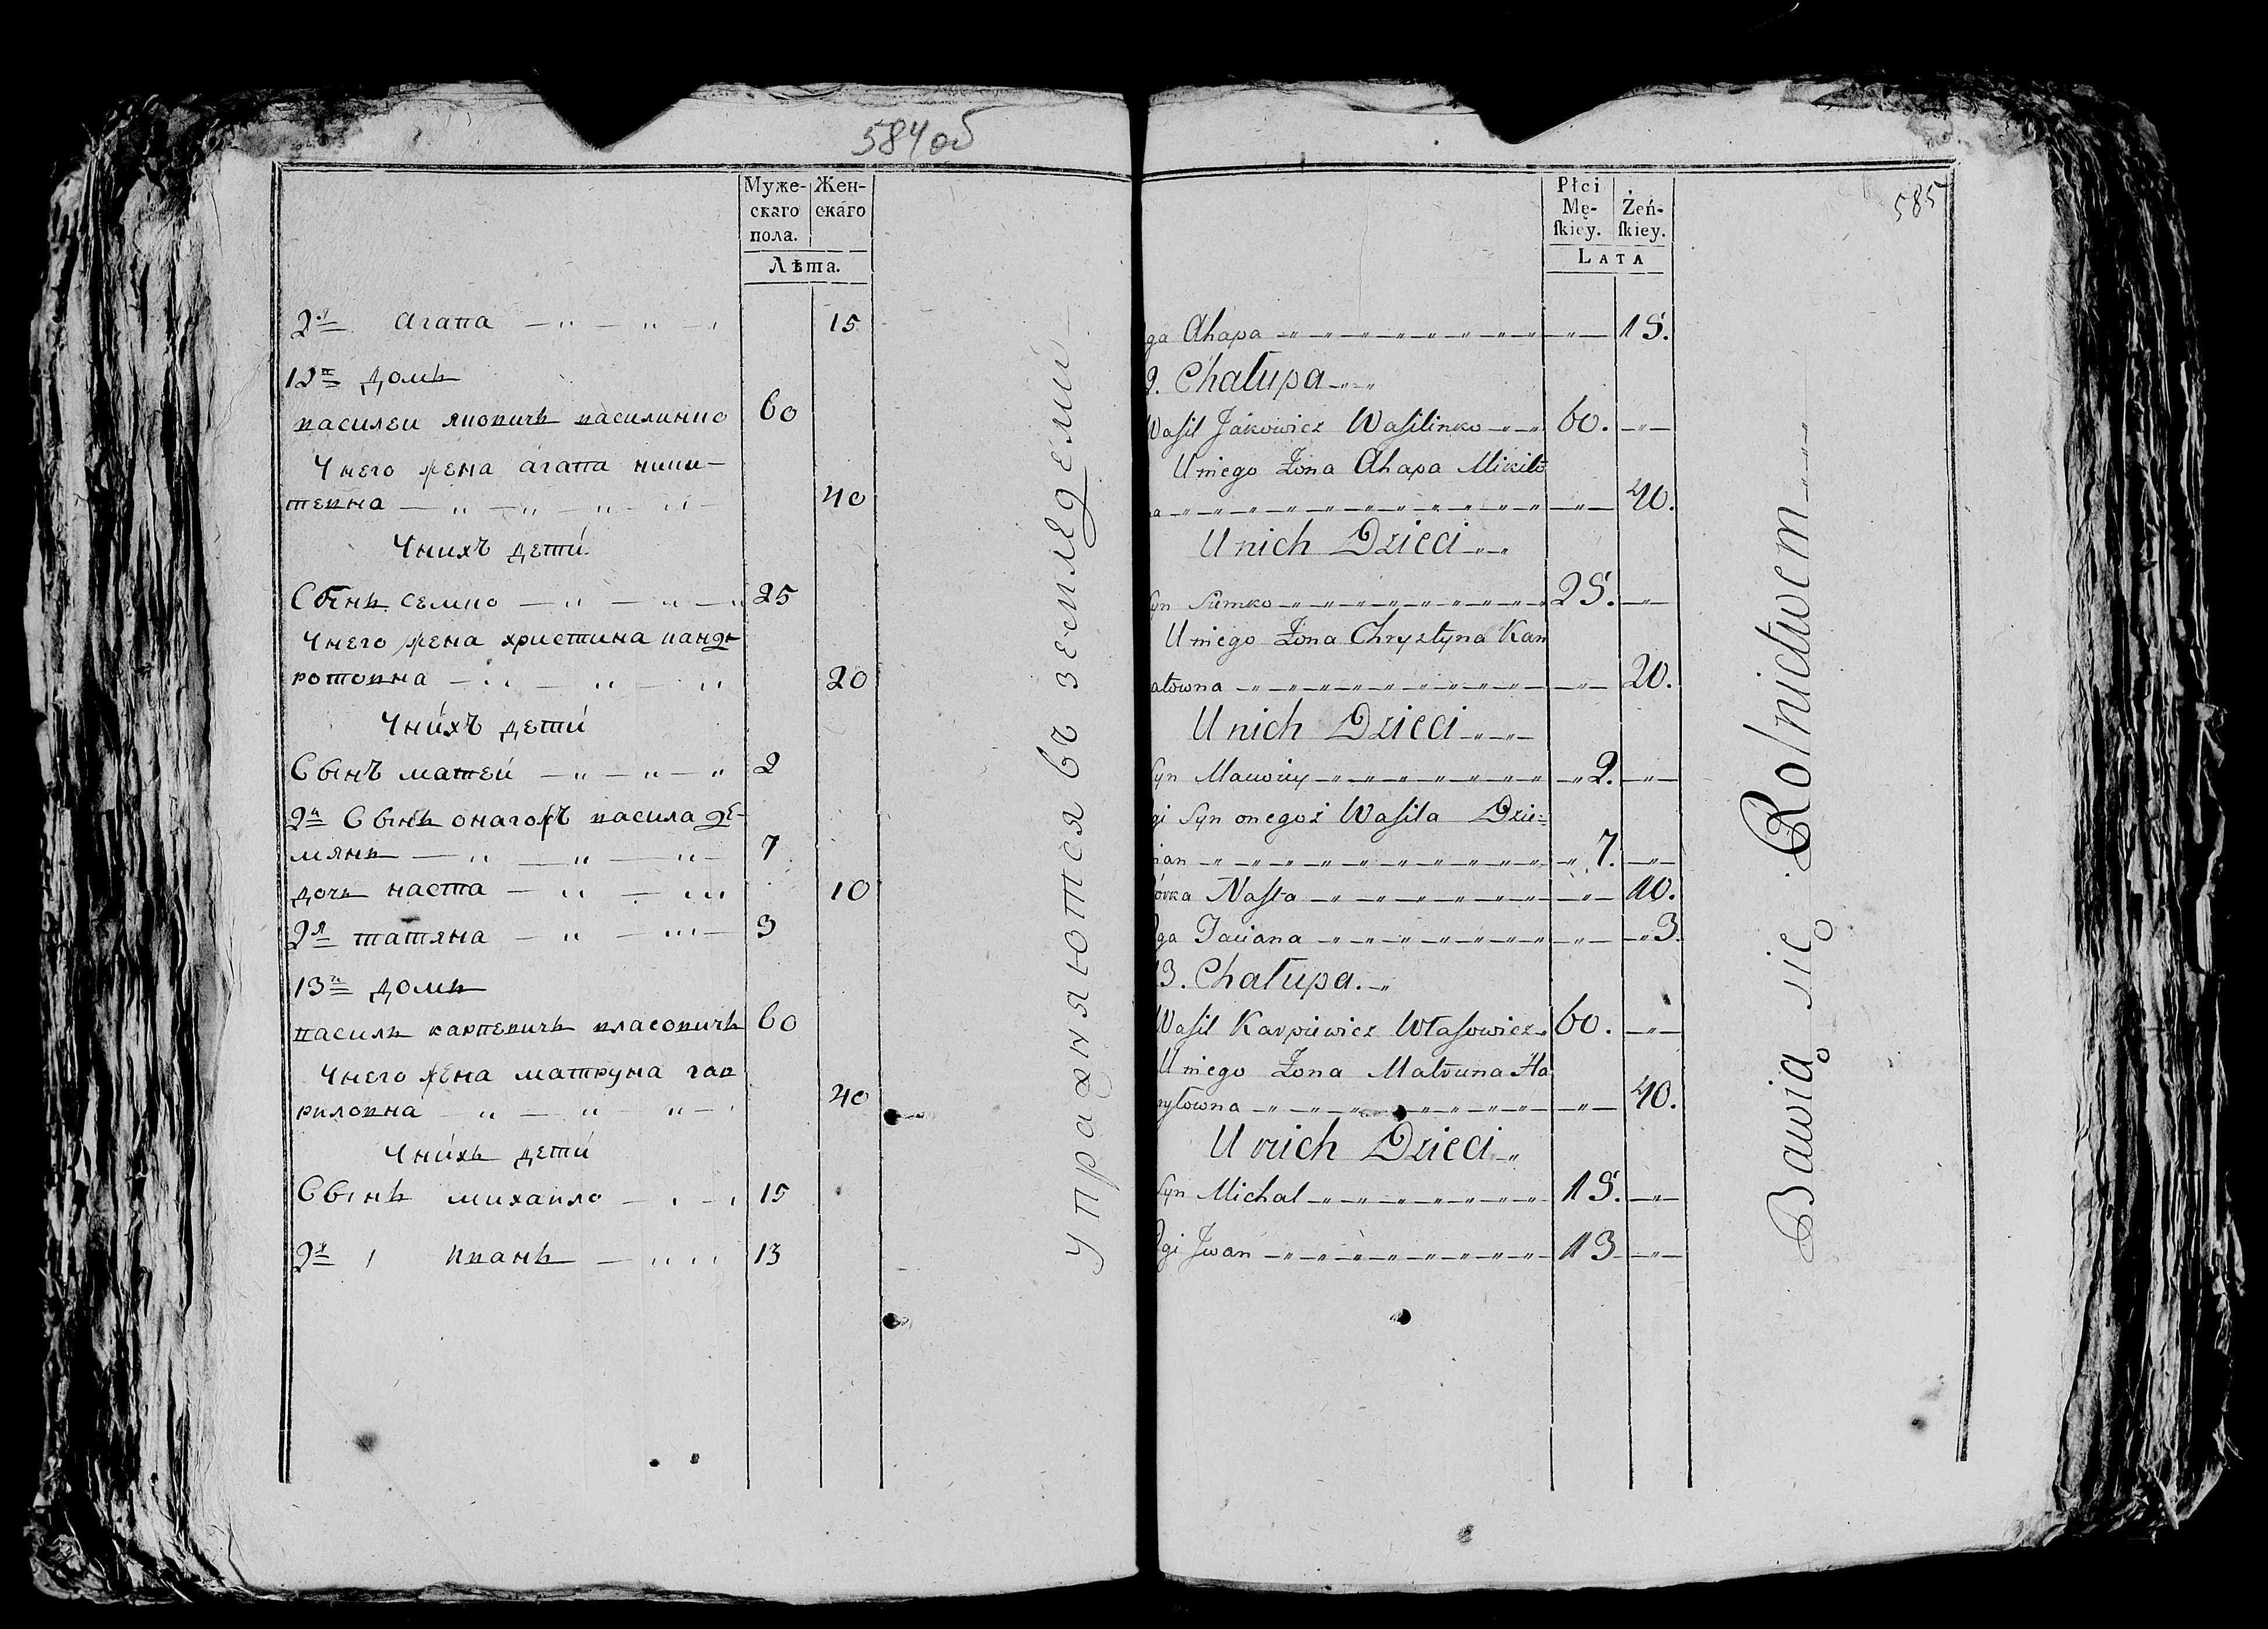 584 об
Муже- Жен-
скаго скаго
пола.
Лѣта.
2я Агапа 15
12й домъ
василеи яковичъ василинко 60
Унего жена агапа ники-
тевна 40
Унихъ дети
Сынъ семко 25
Унего жена христина кандъ
ротовна 20
Унихъ дети
Сынъ матвеи 2
2й Сынъ онагожъ васила де-
мянъ 7
дочь наста 10
2я татяна 3
13й домъ
василь карпевичъ власовичъ 60
Унего жена матруна гав
риловна 40
Унихъ дети
Сынъ михаило 15
2й иванъ 13
упражняются въ земледелии
585
Płci
Mę- Żeń-
skiey. skiey.
LATA
ga Ahapa 15.
2. Chałupa
Wasil Jakowicz Wasilinko 60.
U niego Żona Ahapa Mikito
na 40.
U nich Dzieci
Syn Siemko 25.
U niego Żona Chrystyna Kan
atowna 20.
U nich Dzieci
Syn Maciwiey 2.
gi Syn onegoż Wasila Dzie=
mian 7.
Córka Nasta 10.
2ga Taciana 3.
13. Chałupa.
Wasil Karpiewicz Własowicz 60.
U niego Żona Matruna Ha
ryłowna 40.
U nich Dzieci
Syn Michal 15.
2gi Jwan 13
Bawią się Rolnictwem